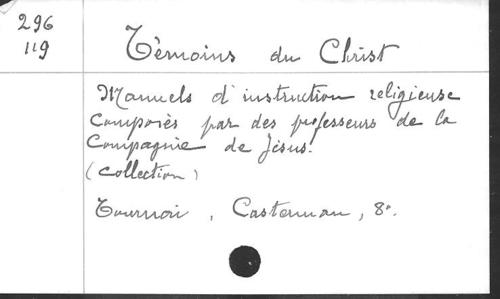 296
119
Témoins du Christ
Manuels d'instruction religieuse
composés par des professeurs de la
Compagnie de Jésus.
(collection)
Tournai, Casterman, 8º.